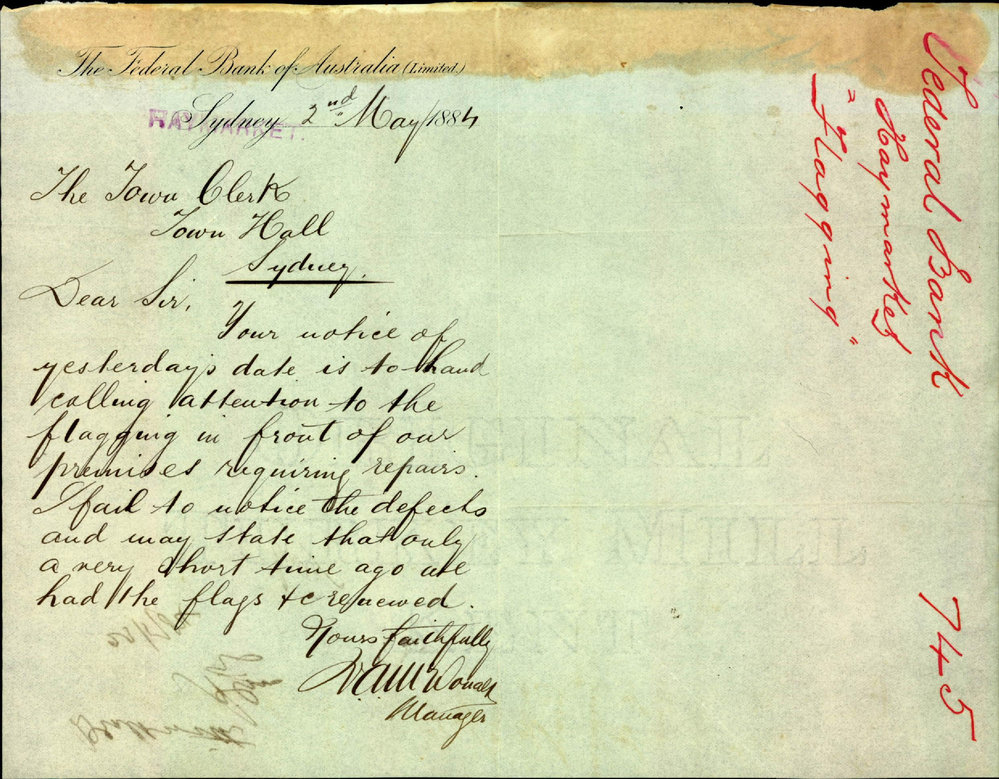 The Federal Bank of Australia (Limited.)
HAYMARKET.
Sydney 2nd May 1884
The Town Clerk
Town Hall
Sydney.
Dear Sir,
Your notice of
yesterday's date is to hand
calling attention to the
flagging in front of our
premises requiring repairs.
I fail to notice the defects
and may state that only
a very short time ago we
had the flags &c renewed.
Yours faithfully
Manager
Federal Bank
Haymarket
"Flagging"
745